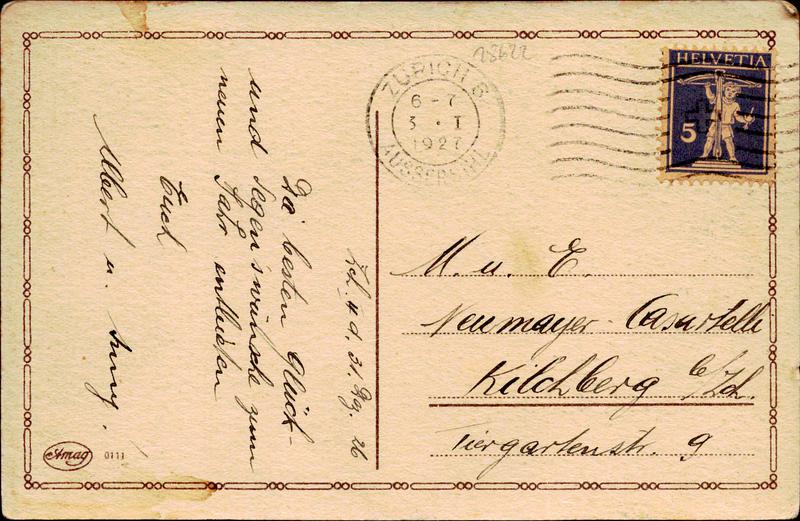 28622
ZÜRICH 6
6-7
3 · I
1927
AUSSERSIHL
HELVETIA
5
Zch. 4 d. 31. Dez. 26
Die besten Glück-
und Segenswünsche zum
neuen Jahr entbieten
Euch
Albert u. Anny.
M. u. E.
Neumayer-Casartelli
Kilchberg b/Zch.
Tiergartenstr. 9
Amag 0111